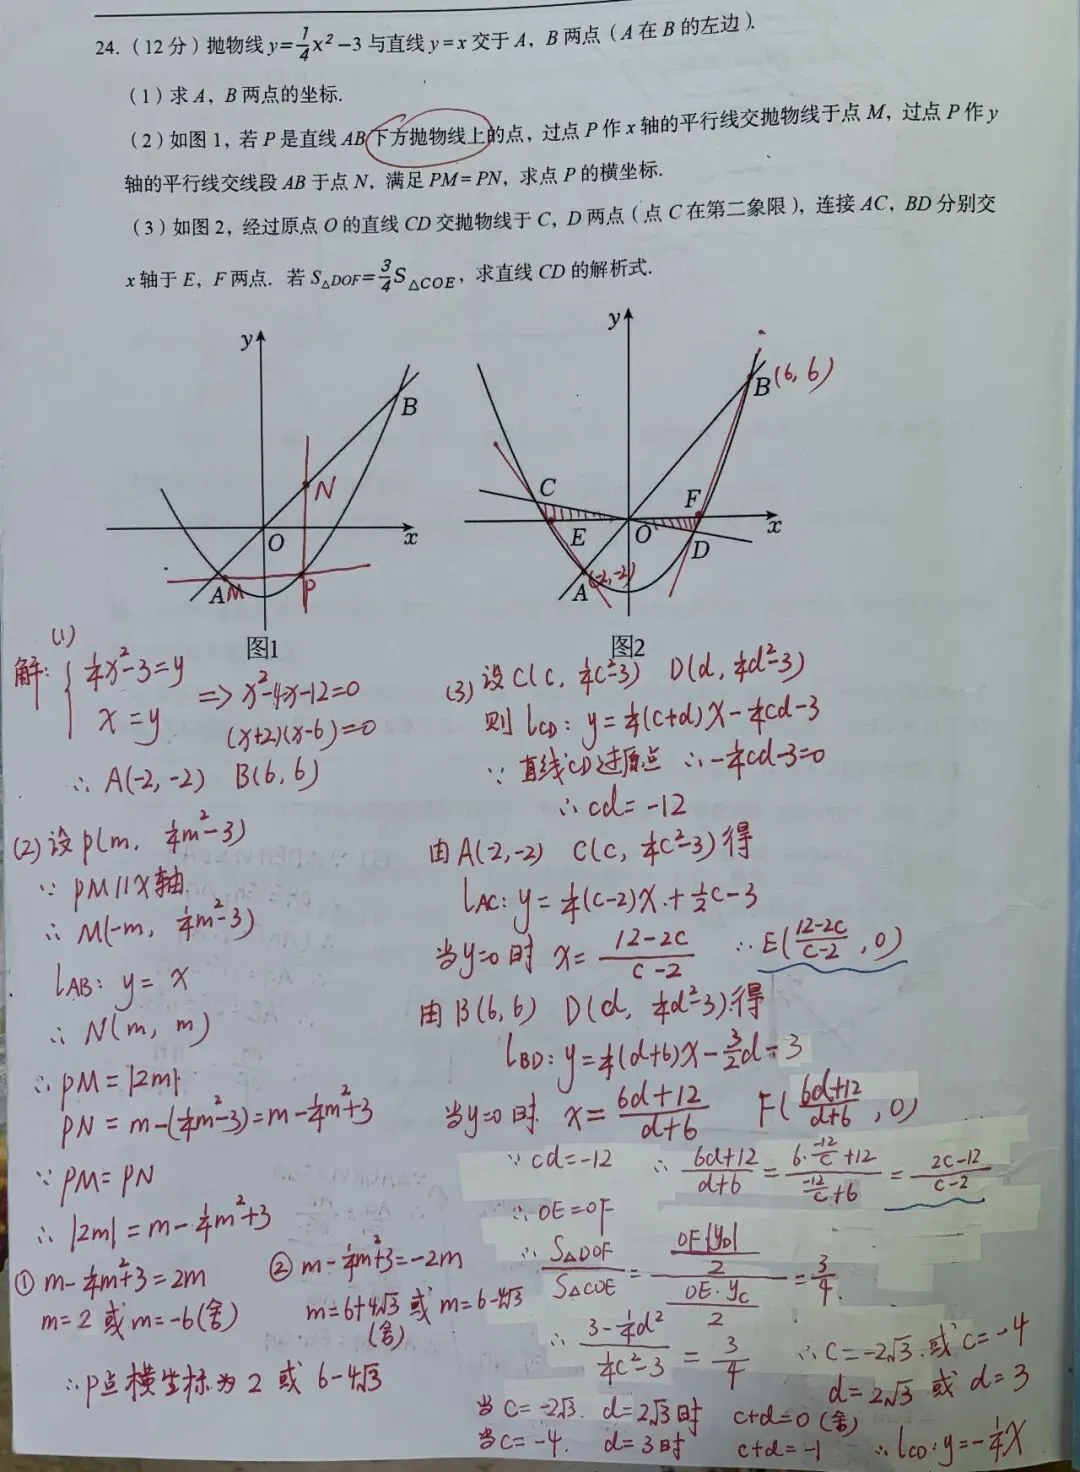 24.(12分)抛物线y=1/4x²-3与直线y=x交于A,B两点(A在B的左边).
(1)求A,B两点的坐标.
(2)如图1,若P是直线AB下方抛物线上的点,过点P作x轴的平行线交抛物线于点M,过点P作y
轴的平行线交线段AB于点N,满足PM=PN,求点P的横坐标.
(3)如图2,经过原点O的直线CD交抛物线于C,D两点(点C在第二象限),连接AC,BD分别交
x轴于E,F两点.若S△DOF=3/4S△COE,求直线CD的解析式.
y
B
N
O
x
A
M
P
图1
y
B(6,6)
C
F
E
O
x
D
A(-2,-2)
图2
(1)
解:{1/4x²-3=y
x=y
=> x²-4x-12=0
(x+2)(x-6)=0
∴ A(-2,-2) B(6,6)
(2)设P(m, 1/4m²-3)
∵ PM//x轴
∴ M(-m, 1/4m²-3)
lAB: y=x
∴ N(m, m)
∴ PM=|2m|
PN=m-(1/4m²-3)=m-1/4m²+3
∵ PM=PN
∴ |2m|=m-1/4m²+3
① m-1/4m²+3=2m
m=2 或 m=-6(舍)
② m-1/4m²+3=-2m
m=6+4√3 或 m=6-4√3
(舍)
∴P点横坐标为2 或 6-4√3
(3)设C(c, 1/4c²-3) D(d, 1/4d²-3)
则 lCD: y=1/4(c+d)x-1/4cd-3
∵ 直线CD过原点 ∴-1/4cd-3=0
∴cd=-12
由A(-2,-2) C(c, 1/4c²-3)得
lAC: y=1/4(c-2)x+1/2c-3
当y=0时 x=12-2c/c-2 ∴E(12-2c/c-2, 0)
由B(6,6) D(d, 1/4d²-3)得
lBD: y=1/4(d+6)x-3/2d-3
当y=0时 x=6d+12/d+6 F(6d+12/d+6, 0)
∵cd=-12 ∴ 6d+12/d+6 = 6·-12/c+12/-12/c+6 = 2c-12/c-2
∴OE=OF
∴ S△DOF/S△COE = OF|yD|/2 / OE·yC/2 = 3/4
∴ 3-1/4d²/1/4c²-3 = 3/4 ∴c=-2√3 或 c=-4
d=2√3 或 d=3
当c=-2√3. d=2√3时 c+d=0(舍)
当c=-4. d=3时 c+d=-1 ∴lCD:y=-1/4x